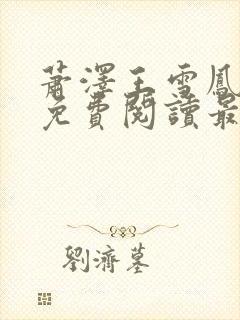 蕭澤王雪鳳
免費閱讀最
劉濟墓